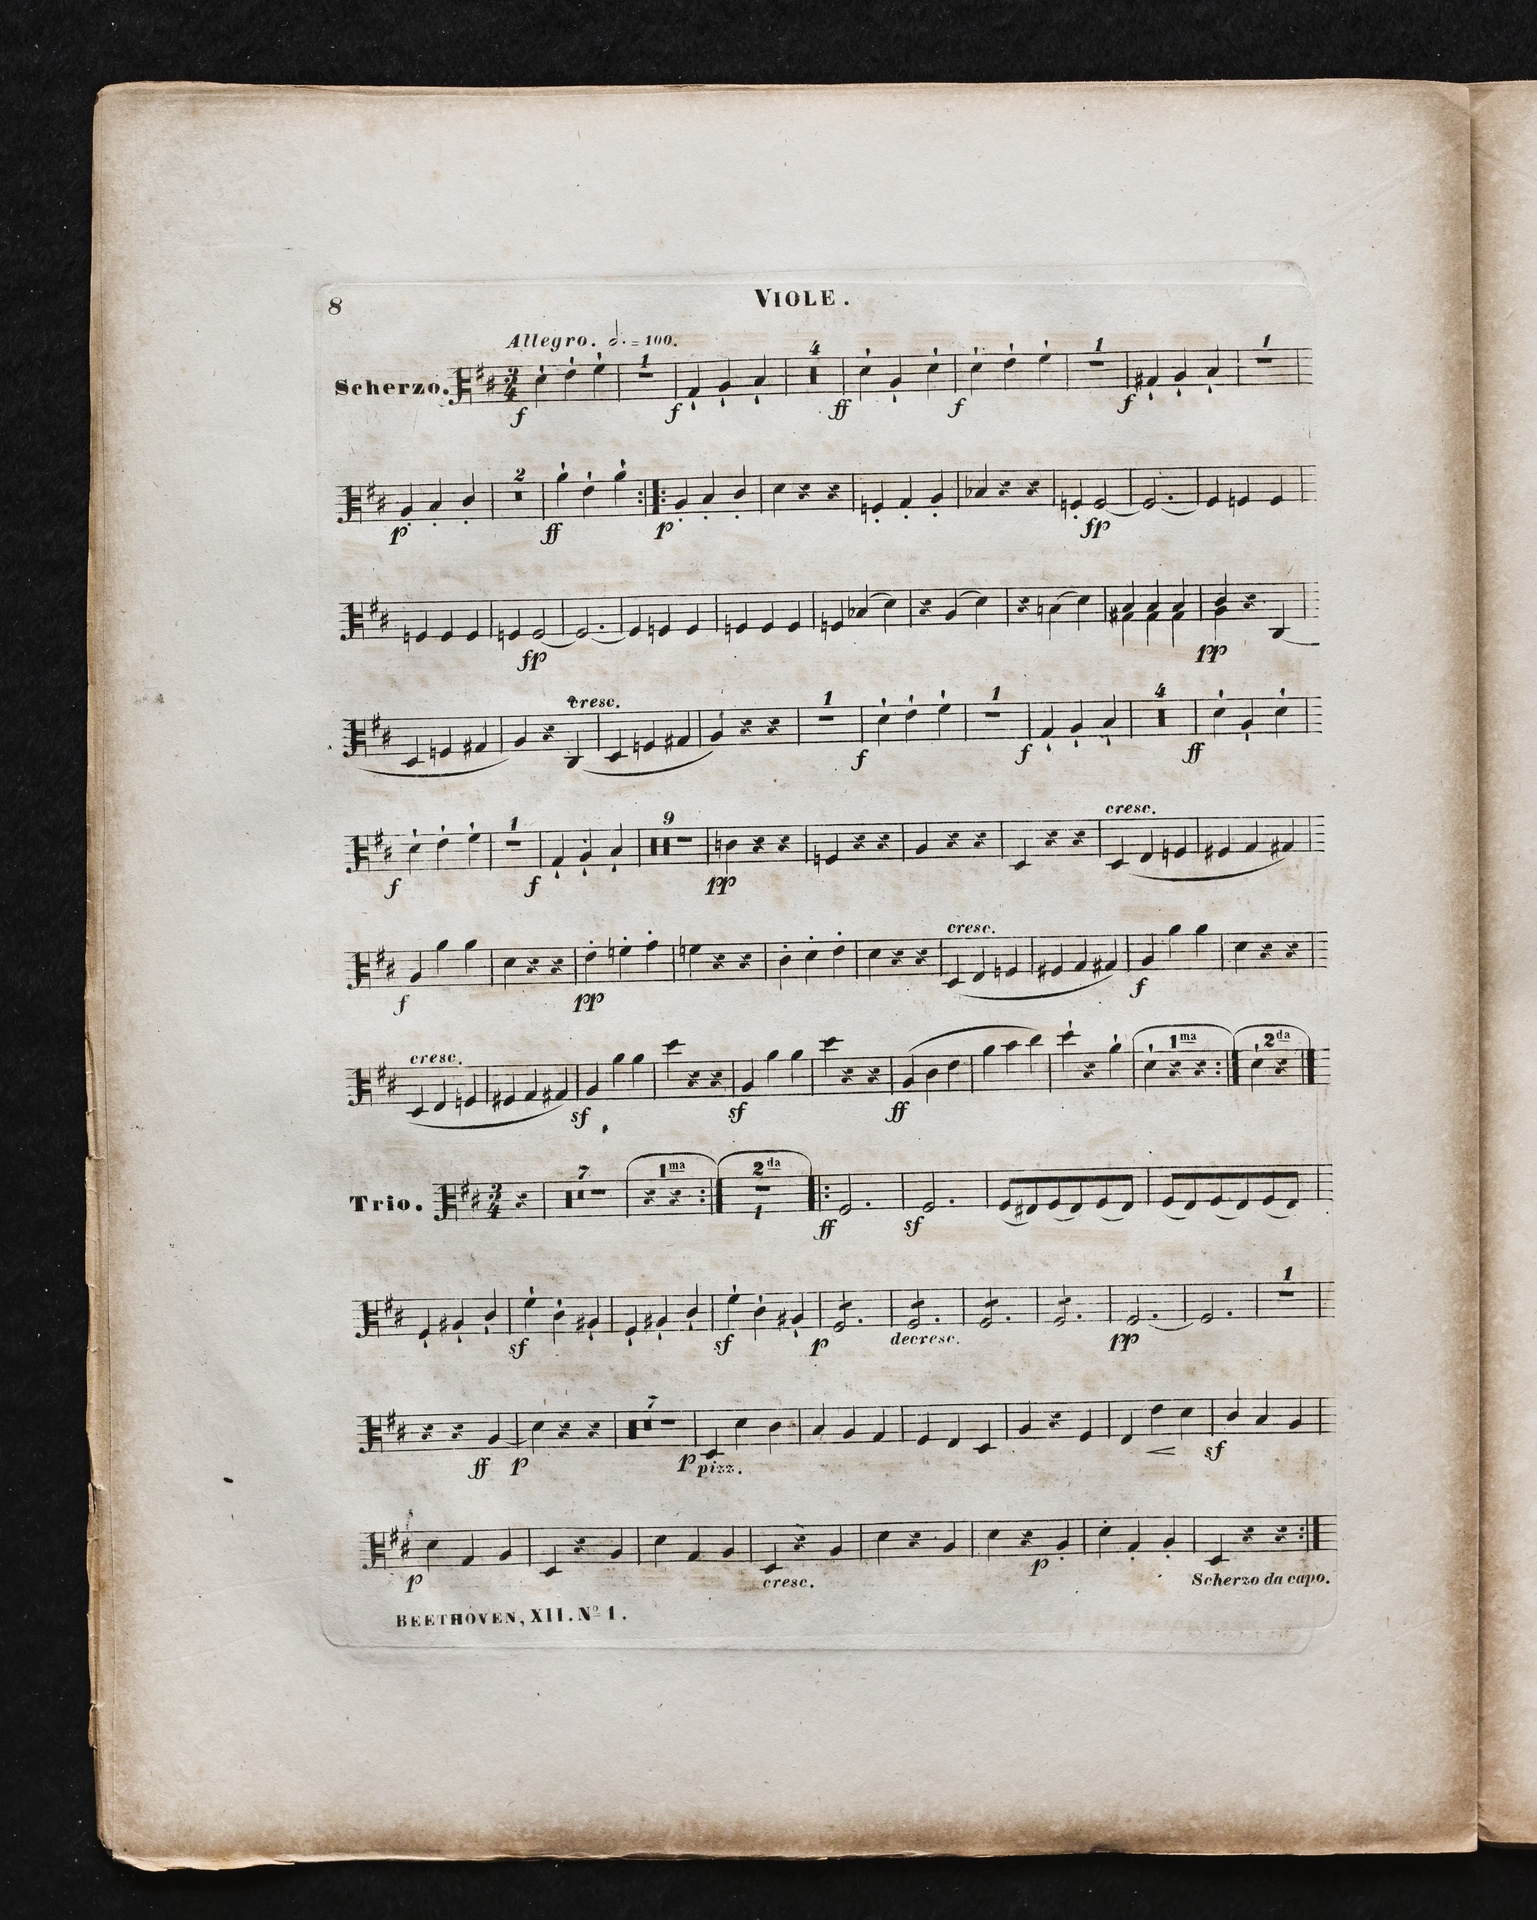 8
VIOLE.
Allegro. 𝅗𝅥. = 100.
Scherzo. 3 4 1 4 1 1
f f ff f f
2
p ff p fp
fp pp
cresc. 1 1 4
f f ff
1 9 cresc.
f f pp
cresc.
f pp f
cresc. 1ma 2da
sf sf ff
Trio. 3 4 7 1ma 2da 1
ff sf
1
sf sf p decresc. pp
7
ff p p pizz. sf
p cresc. p Scherzo da capo.
BEETHOVEN, XII. Nº 1.